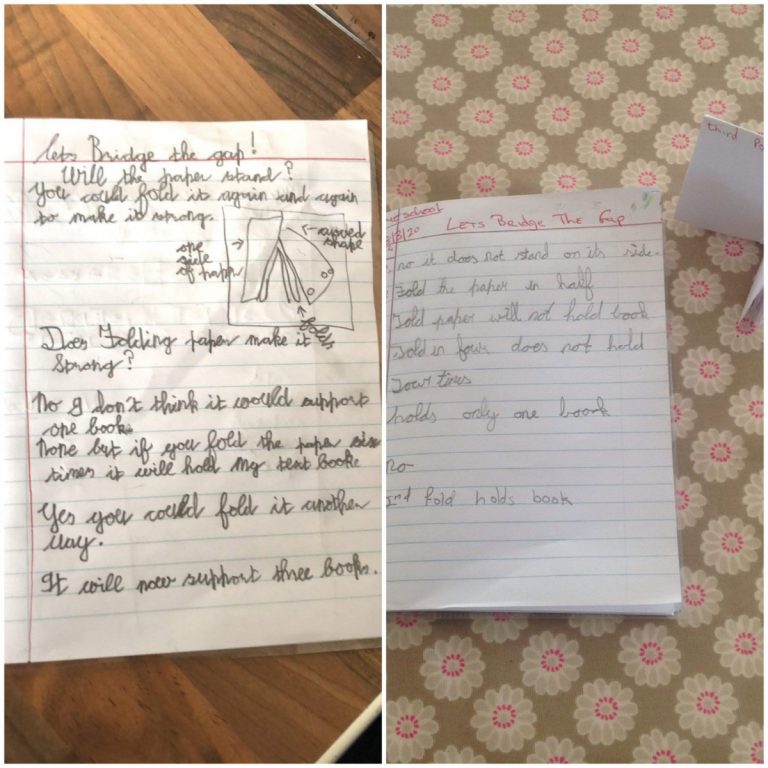 Lets Bridge the gap!
Will the paper stand?
You could fold it again and again
to make it strong.
one
side
of paper
curved
shape
folds
Does Folding paper make it
strong?
No I don't think it would support
one book.
None but if you fold the paper six
times it will hold my text book
Yes you could fold it another
way.
It will now support three books.
school
/3/20
Lets Bridge The Gap
no it does not stand on its side.
fold the paper in half
fold paper will not hold book
fold in four does not hold
four times
holds only one book
no
fold holds book
third